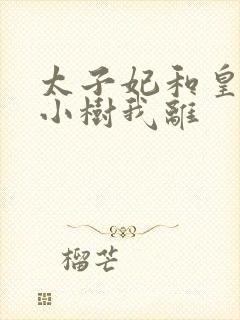 太子妃和皇
小樹我離
榴芒